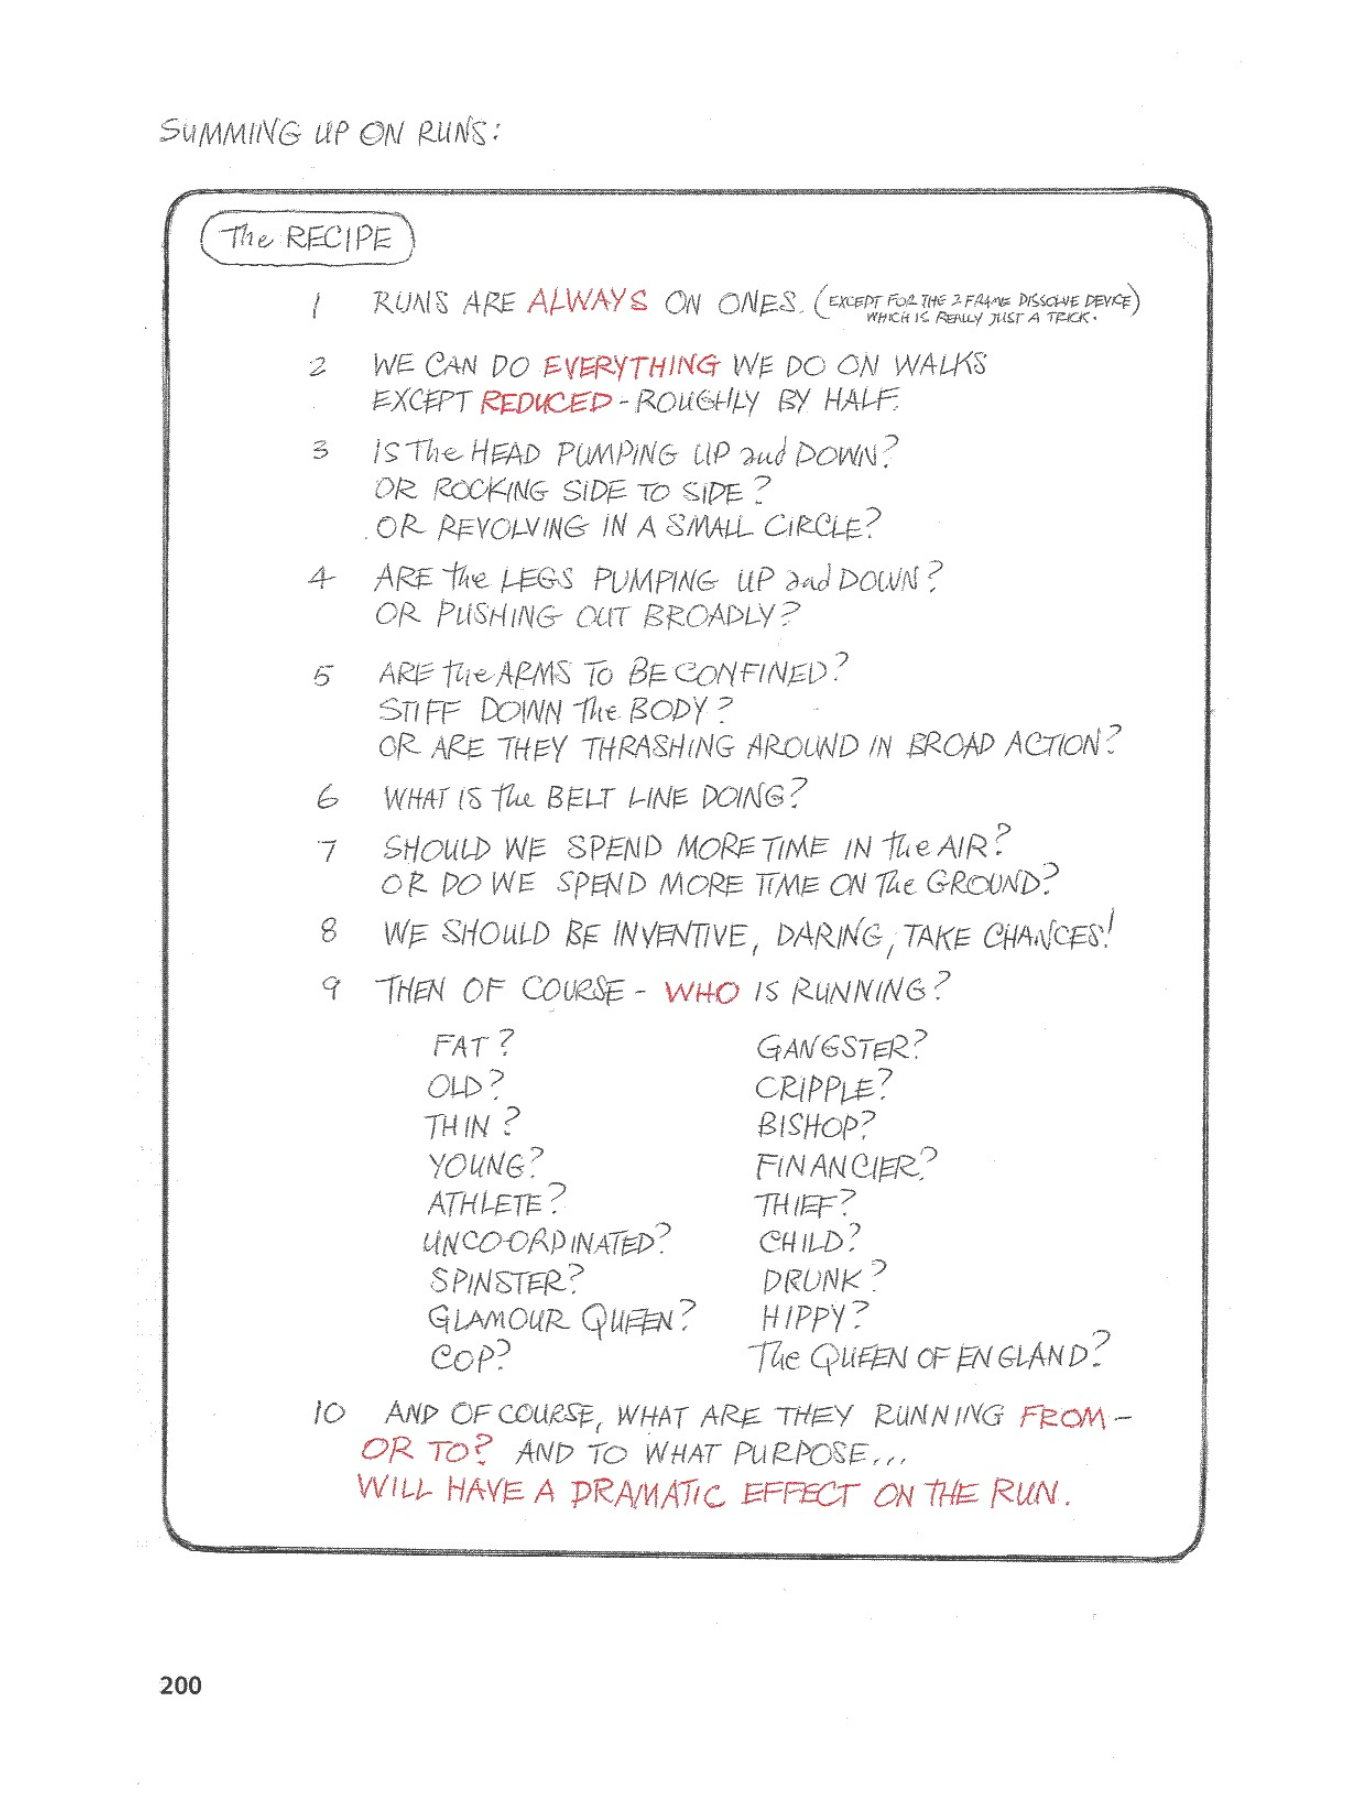 SUMMING UP ON RUNS:
The RECIPE
1 RUNS ARE ALWAYS ON ONES. (EXCEPT FOR THE 2 FRAME DISSOLVE DEVICE)
WHICH IS REALLY JUST A TRICK.
2 WE CAN DO EVERYTHING WE DO ON WALKS
EXCEPT REDUCED - ROUGHLY BY HALF.
3 IS The HEAD PUMPING UP and DOWN?
OR ROCKING SIDE TO SIDE?
OR REVOLVING IN A SMALL CIRCLE?
4 ARE the LEGS PUMPING UP and DOWN?
OR PUSHING OUT BROADLY?
5 ARE the ARMS TO BE CONFINED?
STIFF DOWN The BODY?
OR ARE THEY THRASHING AROUND IN BROAD ACTION?
6 WHAT IS the BELT LINE DOING?
7 SHOULD WE SPEND MORE TIME IN the AIR?
OR DO WE SPEND MORE TIME ON The GROUND?
8 WE SHOULD BE INVENTIVE, DARING, TAKE CHANCES!
9 THEN OF COURSE - WHO IS RUNNING?
FAT?
OLD?
THIN?
YOUNG?
ATHLETE?
UNCO-ORDINATED?
SPINSTER?
GLAMOUR QUEEN?
COP?
GANGSTER?
CRIPPLE?
BISHOP?
FINANCIER?
THIEF?
CHILD?
DRUNK?
HIPPY?
The QUEEN OF ENGLAND?
10 AND OF COURSE, WHAT ARE THEY RUNNING FROM -
OR TO? AND TO WHAT PURPOSE...
WILL HAVE A DRAMATIC EFFECT ON THE RUN.
200